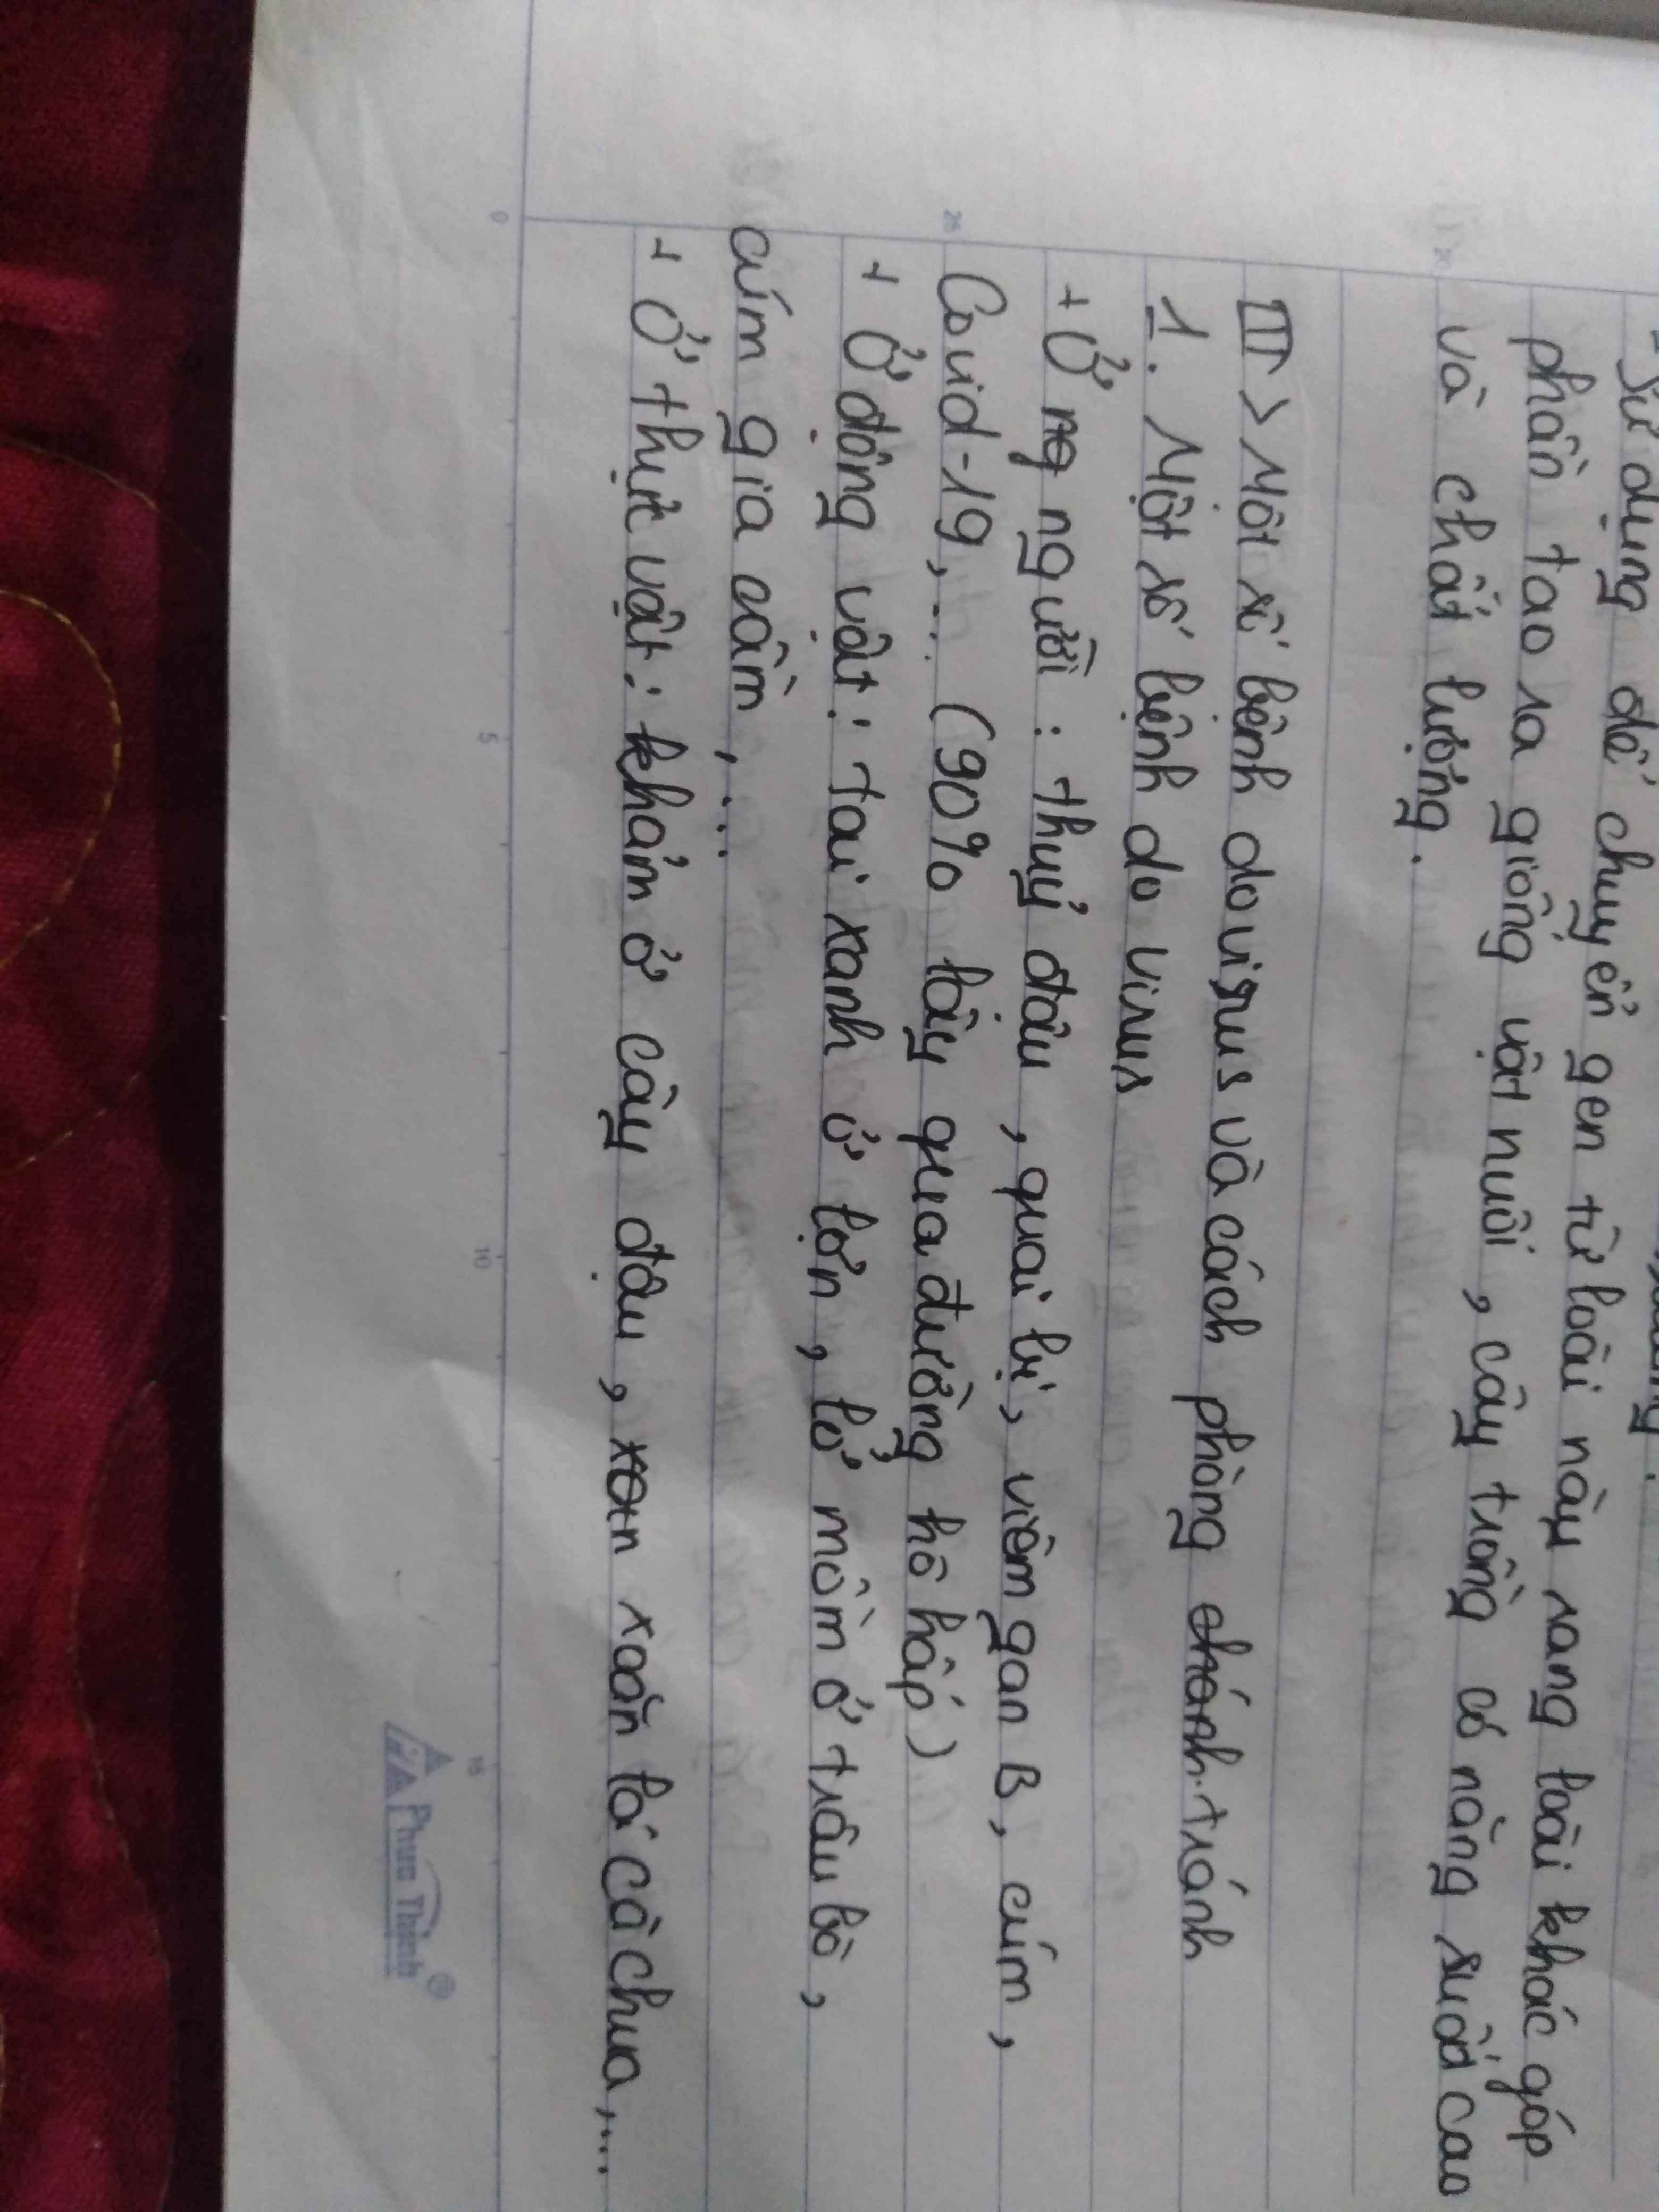 - Sử dụng để chuyển gen từ loài này sang loài khác góp
phần tạo ra giống vật nuôi, cây trồng có năng suất cao
và chất lượng.
III > Một số bệnh do virus và cách phòng chánh. tránh
1. Một số bệnh do virus
+ Ở ng người : thuỷ đậu, quai bị, viêm gan B, cúm,
Covid-19,... (90% lây qua đường hô hấp)
+ Ở động vật : tai xanh ở lợn, lở mồm ở trâu bò,
cúm gia cầm,...
+ Ở thực vật : khảm ở cây đậu, xoan xoăn lá cà chua,...
0 5 10 15
20
25
Phuc Thinh ®